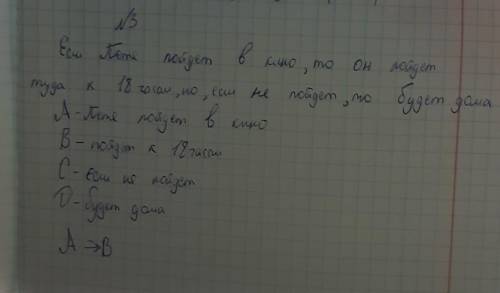 №3
Если Петя пойдет в кино, то он пойдет
туда к 18 часам, но, если не пойдет, то будет дома
A - Петя пойдет в кино
B - пойдет к 18 часам
C - Если не пойдет
D - будет дома
A → B